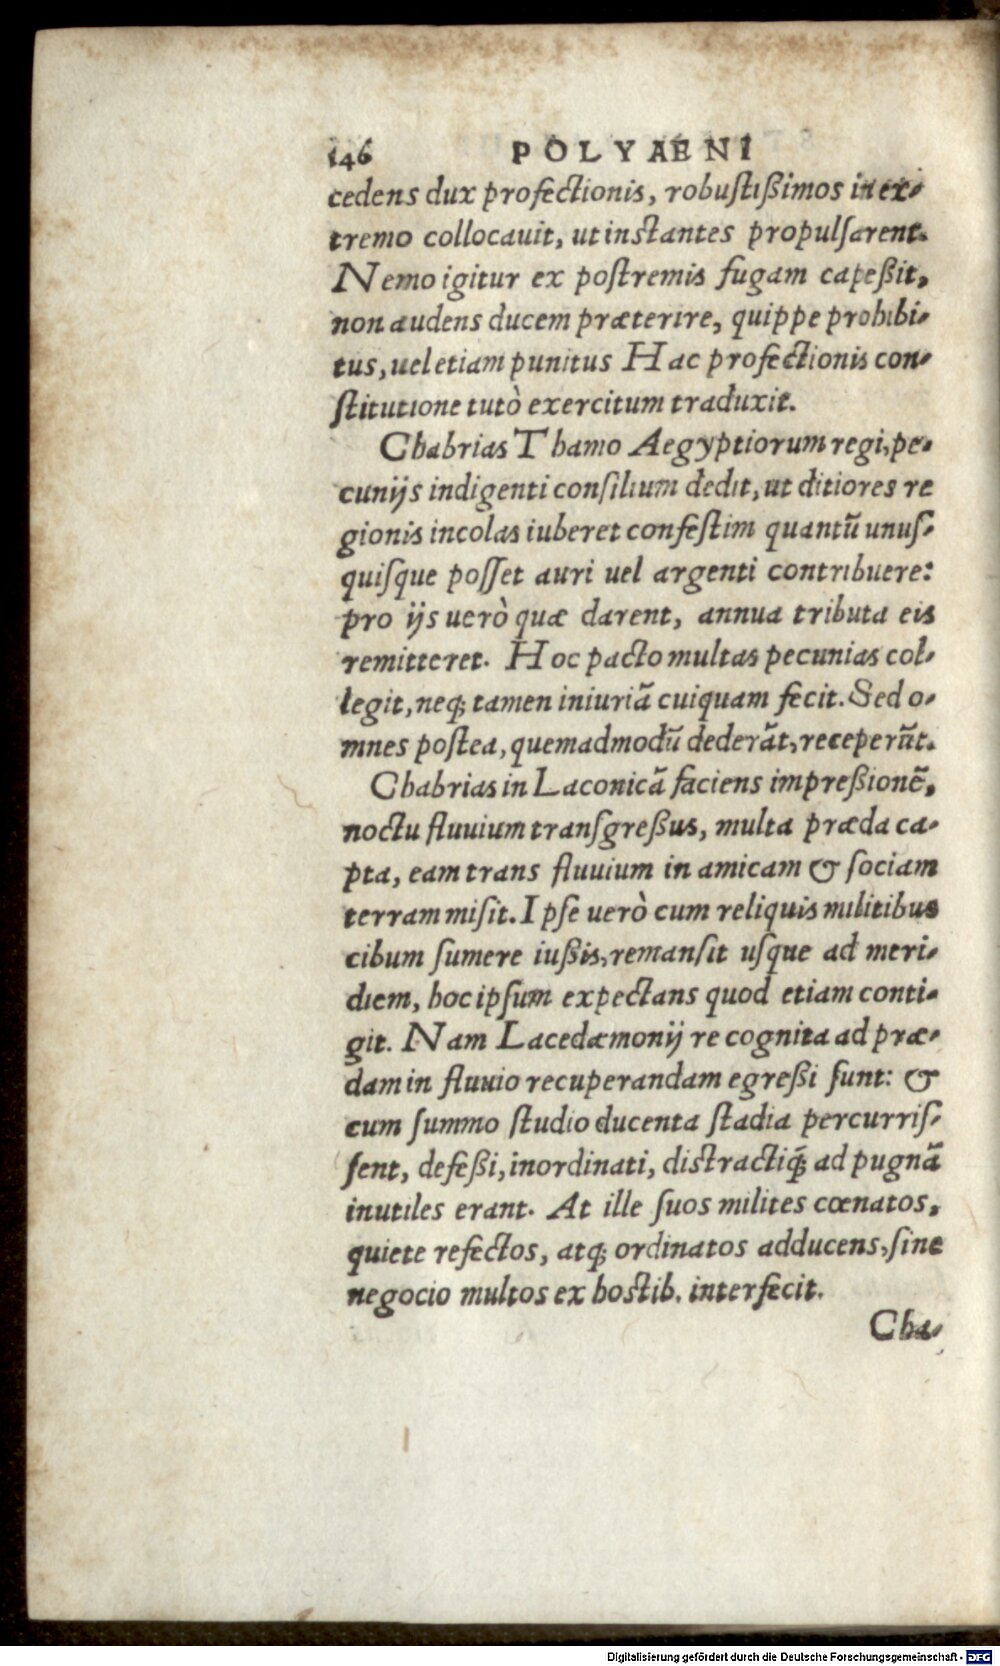 146 POLYAENI
cedens dux profectionis, robustißimos in ex-
tremo collocauit, ut instantes propulsarent.
Nemo igitur ex postremis fugam capeßit,
non audens ducem præterire, quippe prohibi-
tus, uel etiam punitus Hac profectionis con-
stitutione tutò exercitum traduxit.
Chabrias Thamo Aegyptiorum regi, pe-
cunijs indigenti consilium dedit, ut ditiores re
gionis incolas iuberet confestim quantũ unus-
quisque posset auri uel argenti contribuere:
pro ijs uerò quæ darent, annua tributa eis
remitteret. Hoc pacto multas pecunias col-
legit, neq; tamen iniuriã cuiquam fecit. Sed o-
mnes postea, quemadmodũ dederãt, receperũt.
Chabrias in Laconicã faciens impreßionẽ,
noctu fluuium transgreßus, multa præda ca-
pta, eam trans fluuium in amicam & sociam
terram misit. Ipse uerò cum reliquis militibus
cibum sumere iußis, remansit usque ad meri-
diem, hoc ipsum expectans quod etiam conti-
git. Nam Lacedæmonij re cognita ad præ-
dam in fluuio recuperandam egreßi sunt: &
cum summo studio ducenta stadia percurris-
sent, defeßi, inordinati, distractiq́; ad pugnã
inutiles erant. At ille suos milites cœnatos,
quiete refectos, atq; ordinatos adducens, sine
negocio multos ex hostib. interfecit.
Cha-
Digitalisierung gefördert durch die Deutsche Forschungsgemeinschaft - DFG